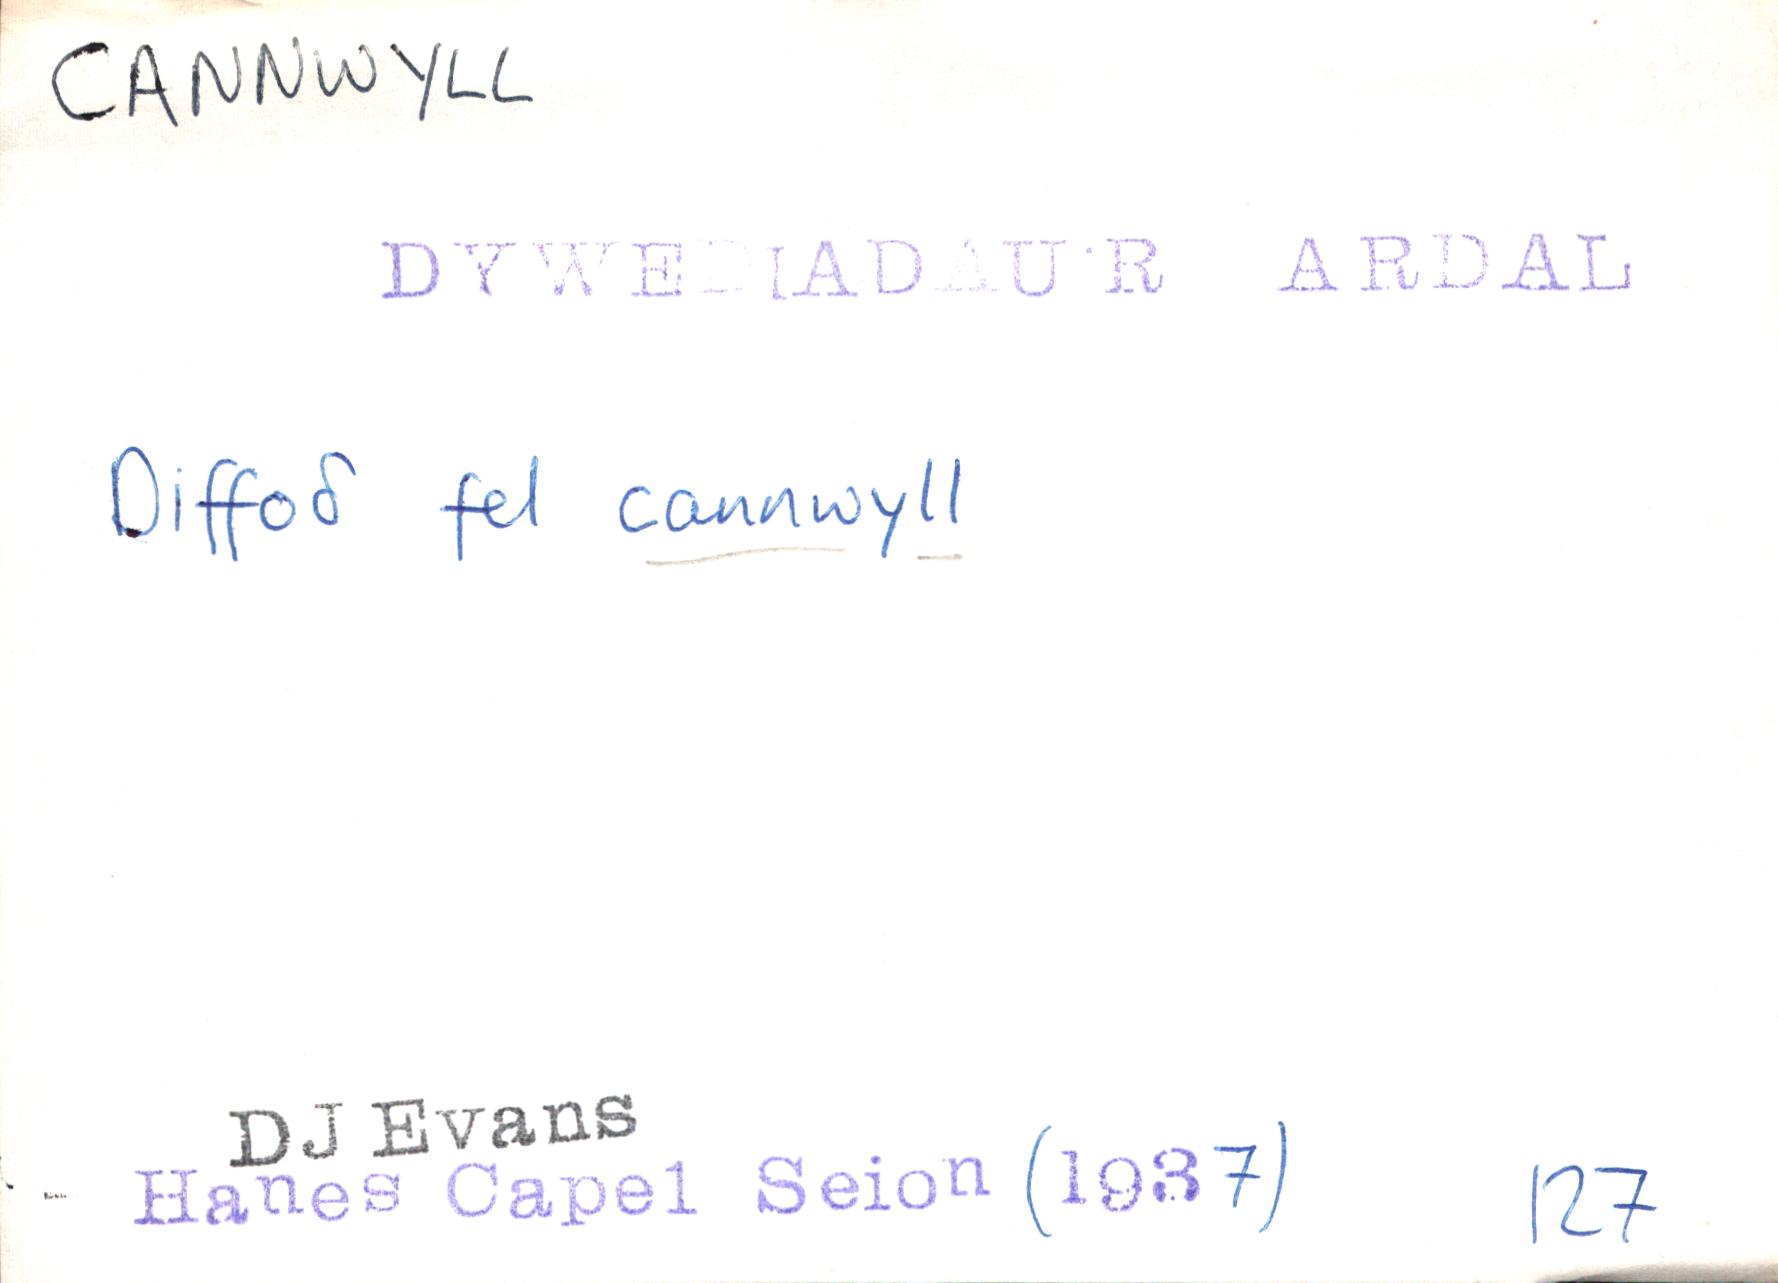 CANNWYLL
DYWEDIADAU'R ARDAL
Diffoδ fel cannwyll
DJ Evans
Hanes Capel Seion (1937) 127